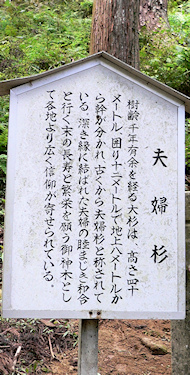 夫婦杉
樹齢千年有余を経る大杉は、高さ四十
メートル、囲り十二メートルで地上八メートルか
ら幹が分かれ、古くから夫婦杉と称されて
いる。深き縁に結ばれた夫婦の睦まじき和合
と行く末の長寿と繁栄を願う御神木とし
て各地より広く信仰が寄せられている。